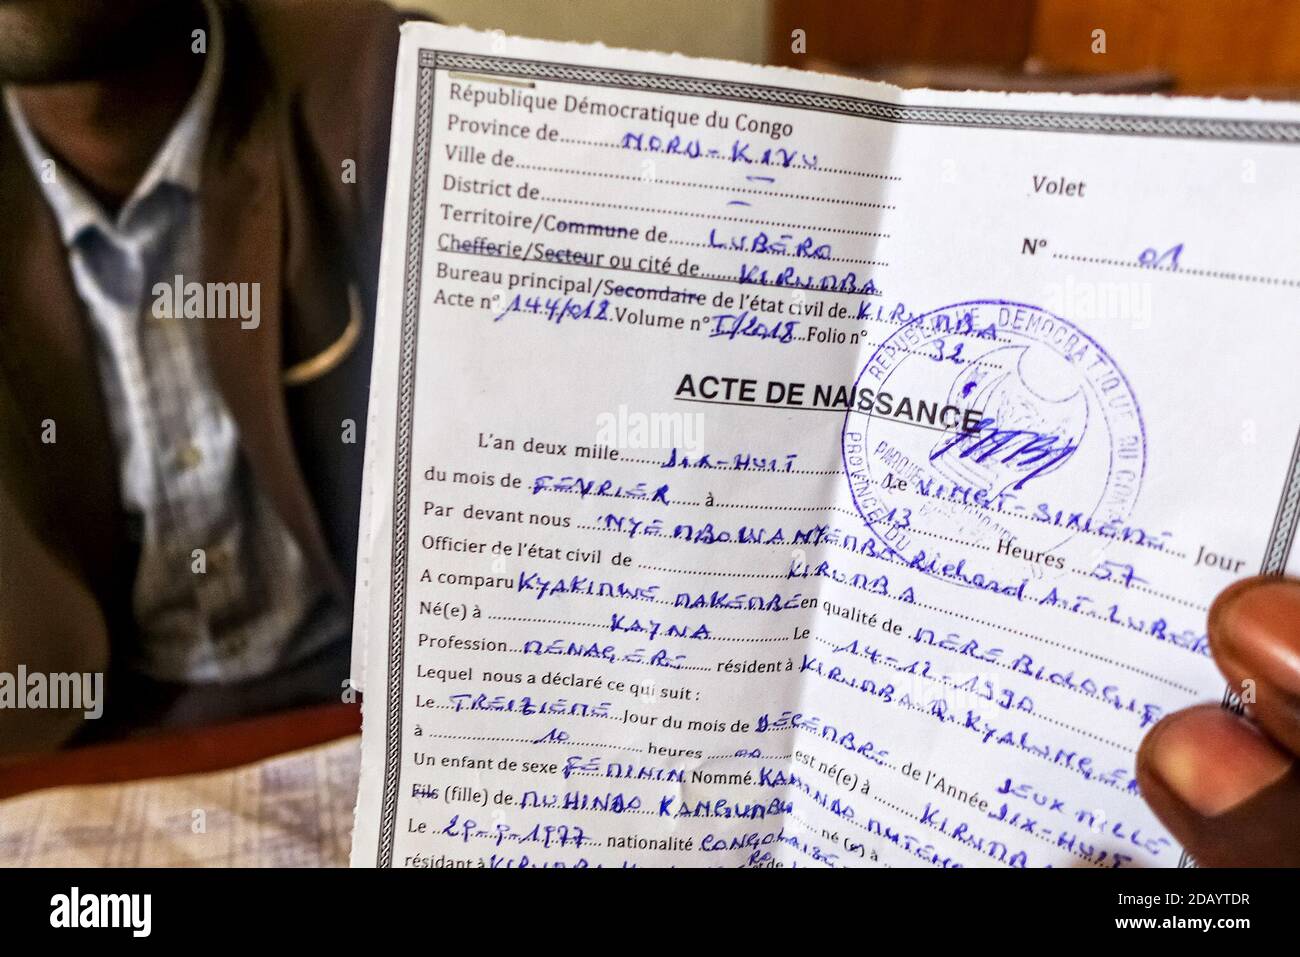 République Démocratique du Congo
Province de NORD-KIVU
Ville de –
District de –
Territoire/Commune de LUBERO
Chefferie/Secteur ou cité de KIRUMBA
Bureau principal/Secondaire de l'état civil de KIRUMBA
Acte n° 144/018 Volume n° I/2018 Folio n° 32
Volet
N° 01
ACTE DE NAISSANCE
L'an deux mille DIX-HUIT Le VINGT-SIXIEME Jour
du mois de FEVRIER à 13 Heures 57
Par devant nous NYEMBOWANYEMBA Richard A.T. LUBER
Officier de l'état civil de KIRUMBA
A comparu KYAKIMWE MAKEMBE en qualité de MERE BIOLOGI
Né(e) à KAYNA Le 14-12-1990
Profession MENAGERE résident à KIRUMBA Q. KYALUMGER
Lequel nous a déclaré ce qui suit :
Le TREIZIEME Jour du mois de DECEMBRE de l'Année DEUX MILLE DIX-HUIT
à 10 heures 00 est né(e) à KIRUMBA
Un enfant de sexe FEMININ Nommé KAMINDO
Fils (fille) de MUHINDO KANGUMBU né (e) à
Le 29-9-1977 nationalité CONGOLAISE
résidant à KIRUMBA
REPUBLIQUE DEMOCRATIQUE DU CONGO
PROVINCE DU NORD
PARQUET
alamy
alamy
Image ID: 2DAYTDR
www.alamy.com